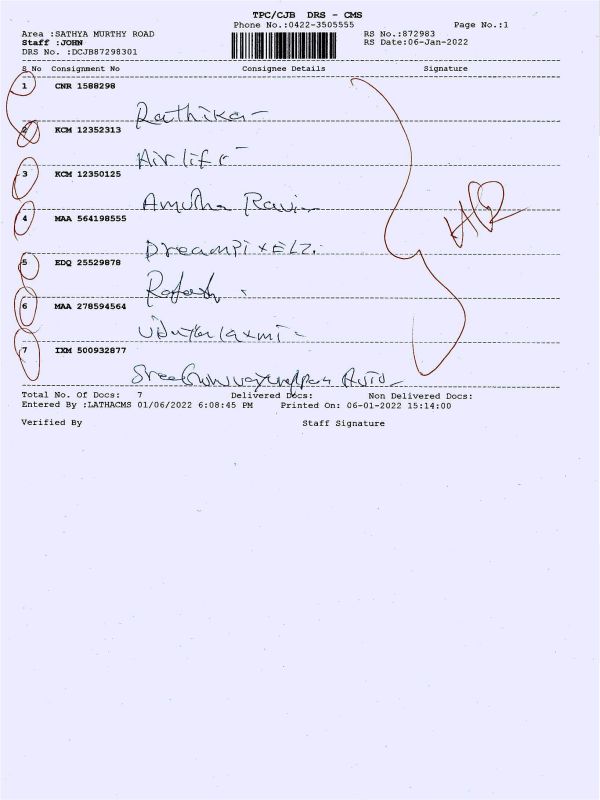 TPC/CJB DRS - CMS
Phone No.:0422-3505555 Page No.:1
Area :SATHYA MURTHY ROAD RS No.:872983
Staff :JOHN RS Date:06-Jan-2022
DRS No. :DCJB87298301
S No Consignment No Consignee Details Signature
1 CNR 1588298
Rathika
2 KCM 12352313
Air lift
3 KCM 12350125
Amutha Ravi
4 MAA 564198555
Dreampixelz
5 EDQ 25529878
6 MAA 278594564
7 IXM 500932877
Auto
Total No. Of Docs: 7 Delivered Docs: Non Delivered Docs:
Entered By :LATHACMS 01/06/2022 6:08:45 PM Printed On: 06-01-2022 15:14:00
Verified By Staff Signature